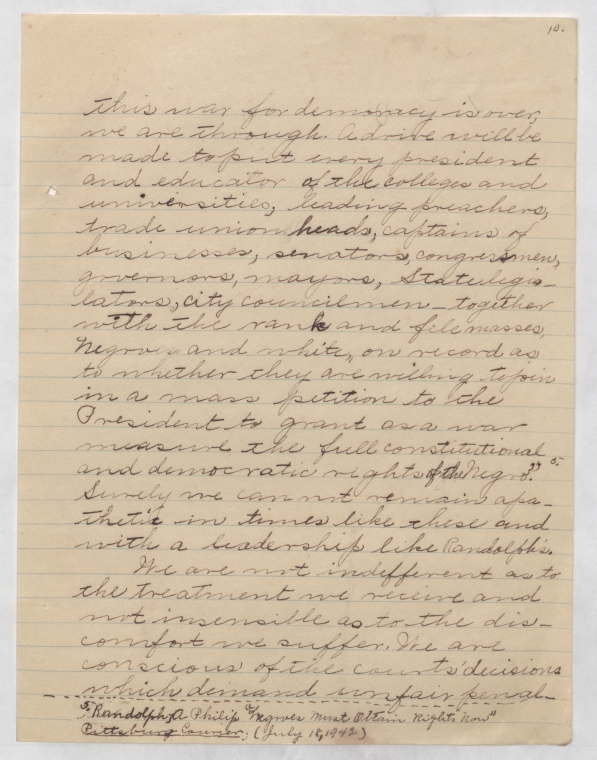 10.
this war for democracy is over,
we are through. A drive will be
made to put every president
and educator of the colleges and
universities, leading preachers,
trade union heads, captains of
businesses, senators, congressmen,
governors, mayors, State legis-
lators, city councilmen – together
with the rank and file masses,
Negroes and white, on record as
to whether they are willing to join
in a mass petition to the
President to grant as a war
measure the full constitutional
and democratic rights of the Negro." 5.
Surely we can not remain apa-
thetic in times like these and
with a leadership like Randolph's.
We are not indifferent as to
the treatment we receive and
not insensible as to the dis-
comfort we suffer. We are
conscious of the courts' decisions
which demand unfair penal-
5. Randolph, A Philip "Negroes Must Obtain Rights Now"
Pittsburg Courier, (July 18, 1942)